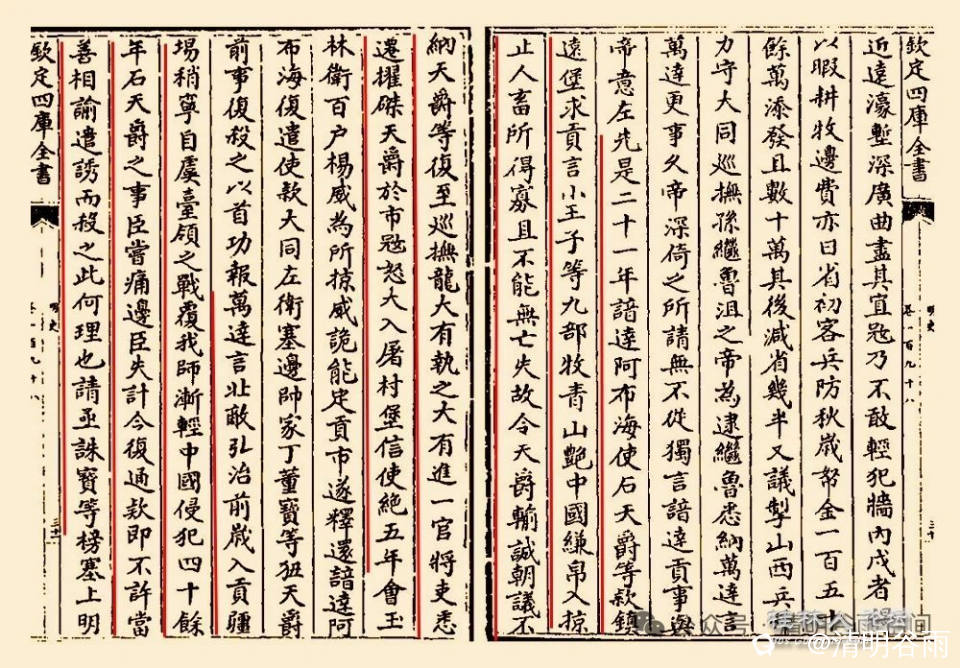 欽定四庫全書
明史
卷一百九十八
三十
近遠濠塹深廣曲盡其宜冦乃不敢輕犯牆內戍者
以暇耕牧邊費亦日省初客兵防秋歳帑金一百五十
餘萬添發且數十萬其後減省幾半又議掣山西兵
力守大同巡撫孫繼魯沮之帝為逮繼魯悉納萬達言
萬達更事久帝深倚之所請無不從獨言諳達貢事與
帝意左先是二十一年諳達阿布海使石天爵等款鎮
遠堡求貢言小王子等九部牧青山艶中國縑帛入掠
止人畜所得寡且不能無亡失故令天爵輸誠朝議不
納天爵等復至巡撫龍大有執之大有進一官將吏悉
遷擢磔天爵於市冦怒大入屠村堡信使絶五年會玉
林衛百户楊威為所掠威詭能定貢市遂釋還諳達阿
布海復遣使款大同左衛塞邊帥家丁董寶等狃天爵
前事復殺之以首功報萬達言北敵弘治前歳入貢疆
場稍寧自虞臺嶺之戰覆我師漸輕中國侵犯四十餘
年石天爵之事臣嘗痛邊臣失計今復通款即不許當
善相諭遣誘而殺之此何理也請亟誅寶等榜塞上明
欽定四庫全書
明史
卷一百九十八
三十一
@清明谷雨